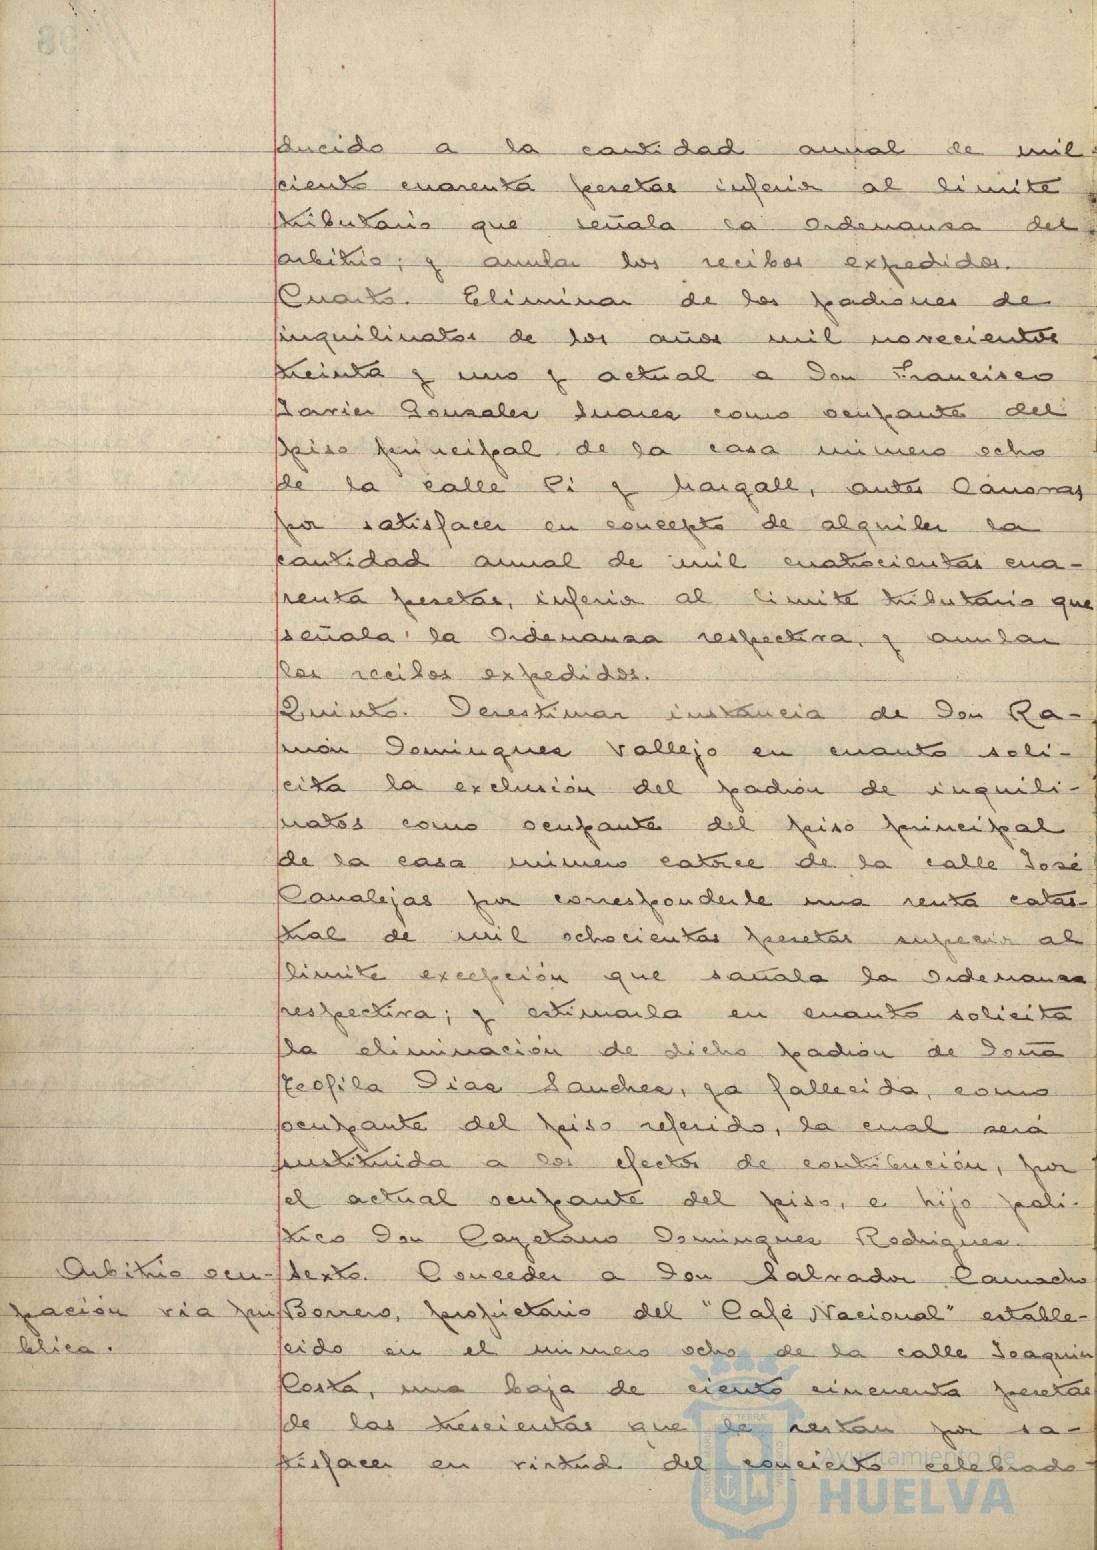 ducido a la cantidad anual de mil
ciento cuarenta pesetas inferior al limite
tributario que señala la Ordenansa del
arbitrio; y anular los recibos expedidos.
Cuarto. Eliminar de los padrones de
inquilinatos de los años mil novecientos
treinta y uno y actual a Don Francisco
Javier Gonsales Suares como ocupante del
piso principal de la casa número ocho
de la calle Pi y Margall, antes Cánovas
por satisfacer en concepto de alquiler la
cantidad anual de mil cuatrocientas cua-
renta pesetas, inferior al limite tributario que
señala la Ordenansa respectiva, y anular
los recibos expedidos.
Quinto. Desestimar instancia de Don Ra-
món Domingues Vallejo en cuanto soli-
cita la exclusión del padrón de inquili-
natos como ocupante del piso principal
de la casa número catorce de la calle José
Canalejas por corresponderle una renta catas-
tral de mil ochocientas pesetas superior al
limite excepción que sañala la Ordenansa
respectiva; y estimarla en cuanto solicita
la eliminación de dicho padrón de Doña
Teofila Dias Sanches, ya fallecida, como
ocupante del piso referido, la cual será
sustituida a los efectos de contribución, por
el actual ocupante del piso, e hijo poli-
tico Don Cayetano Domingues Rodrigues.
Arbitrio ocu-
pación via pu
blica.
Sexto. Conceder a Don Salvador Camacho
Borrero, propietario del "Café Nacional" estable-
cido en el número ocho de la calle Joaquin
Costa, una baja de ciento cincuenta pesetas
de las trescientas que le restan por sa-
tisfacer en virtud del concierto celebrado
Ayuntamiento de
HUELVA